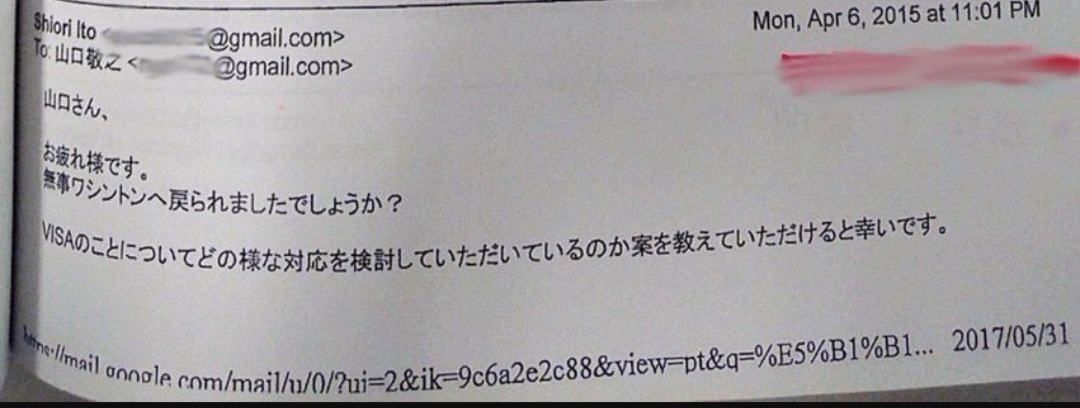 Shiori Ito < @gmail.com>
Mon, Apr 6, 2015 at 11:01 PM
To: 山口敬之 < @gmail.com>
山口さん、
お疲れ様です。
無事ワシントンへ戻られましたでしょうか？
VISAのことについてどの様な対応を検討していただいているのか案を教えていただけると幸いです。
https://mail.google.com/mail/u/0/?ui=2&ik=9c6a2e2c88&view=pt&q=%E5%B1%B1... 2017/05/31